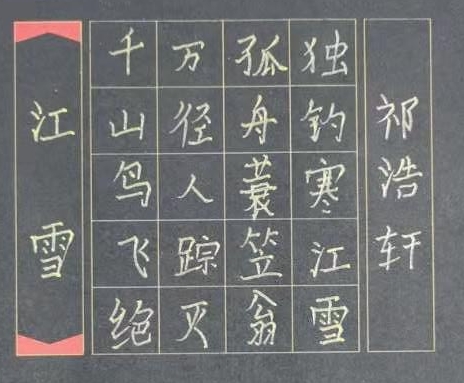 江雪
千山鸟飞绝
万径人踪灭
孤舟蓑笠翁
独钓寒江雪
祁浩轩